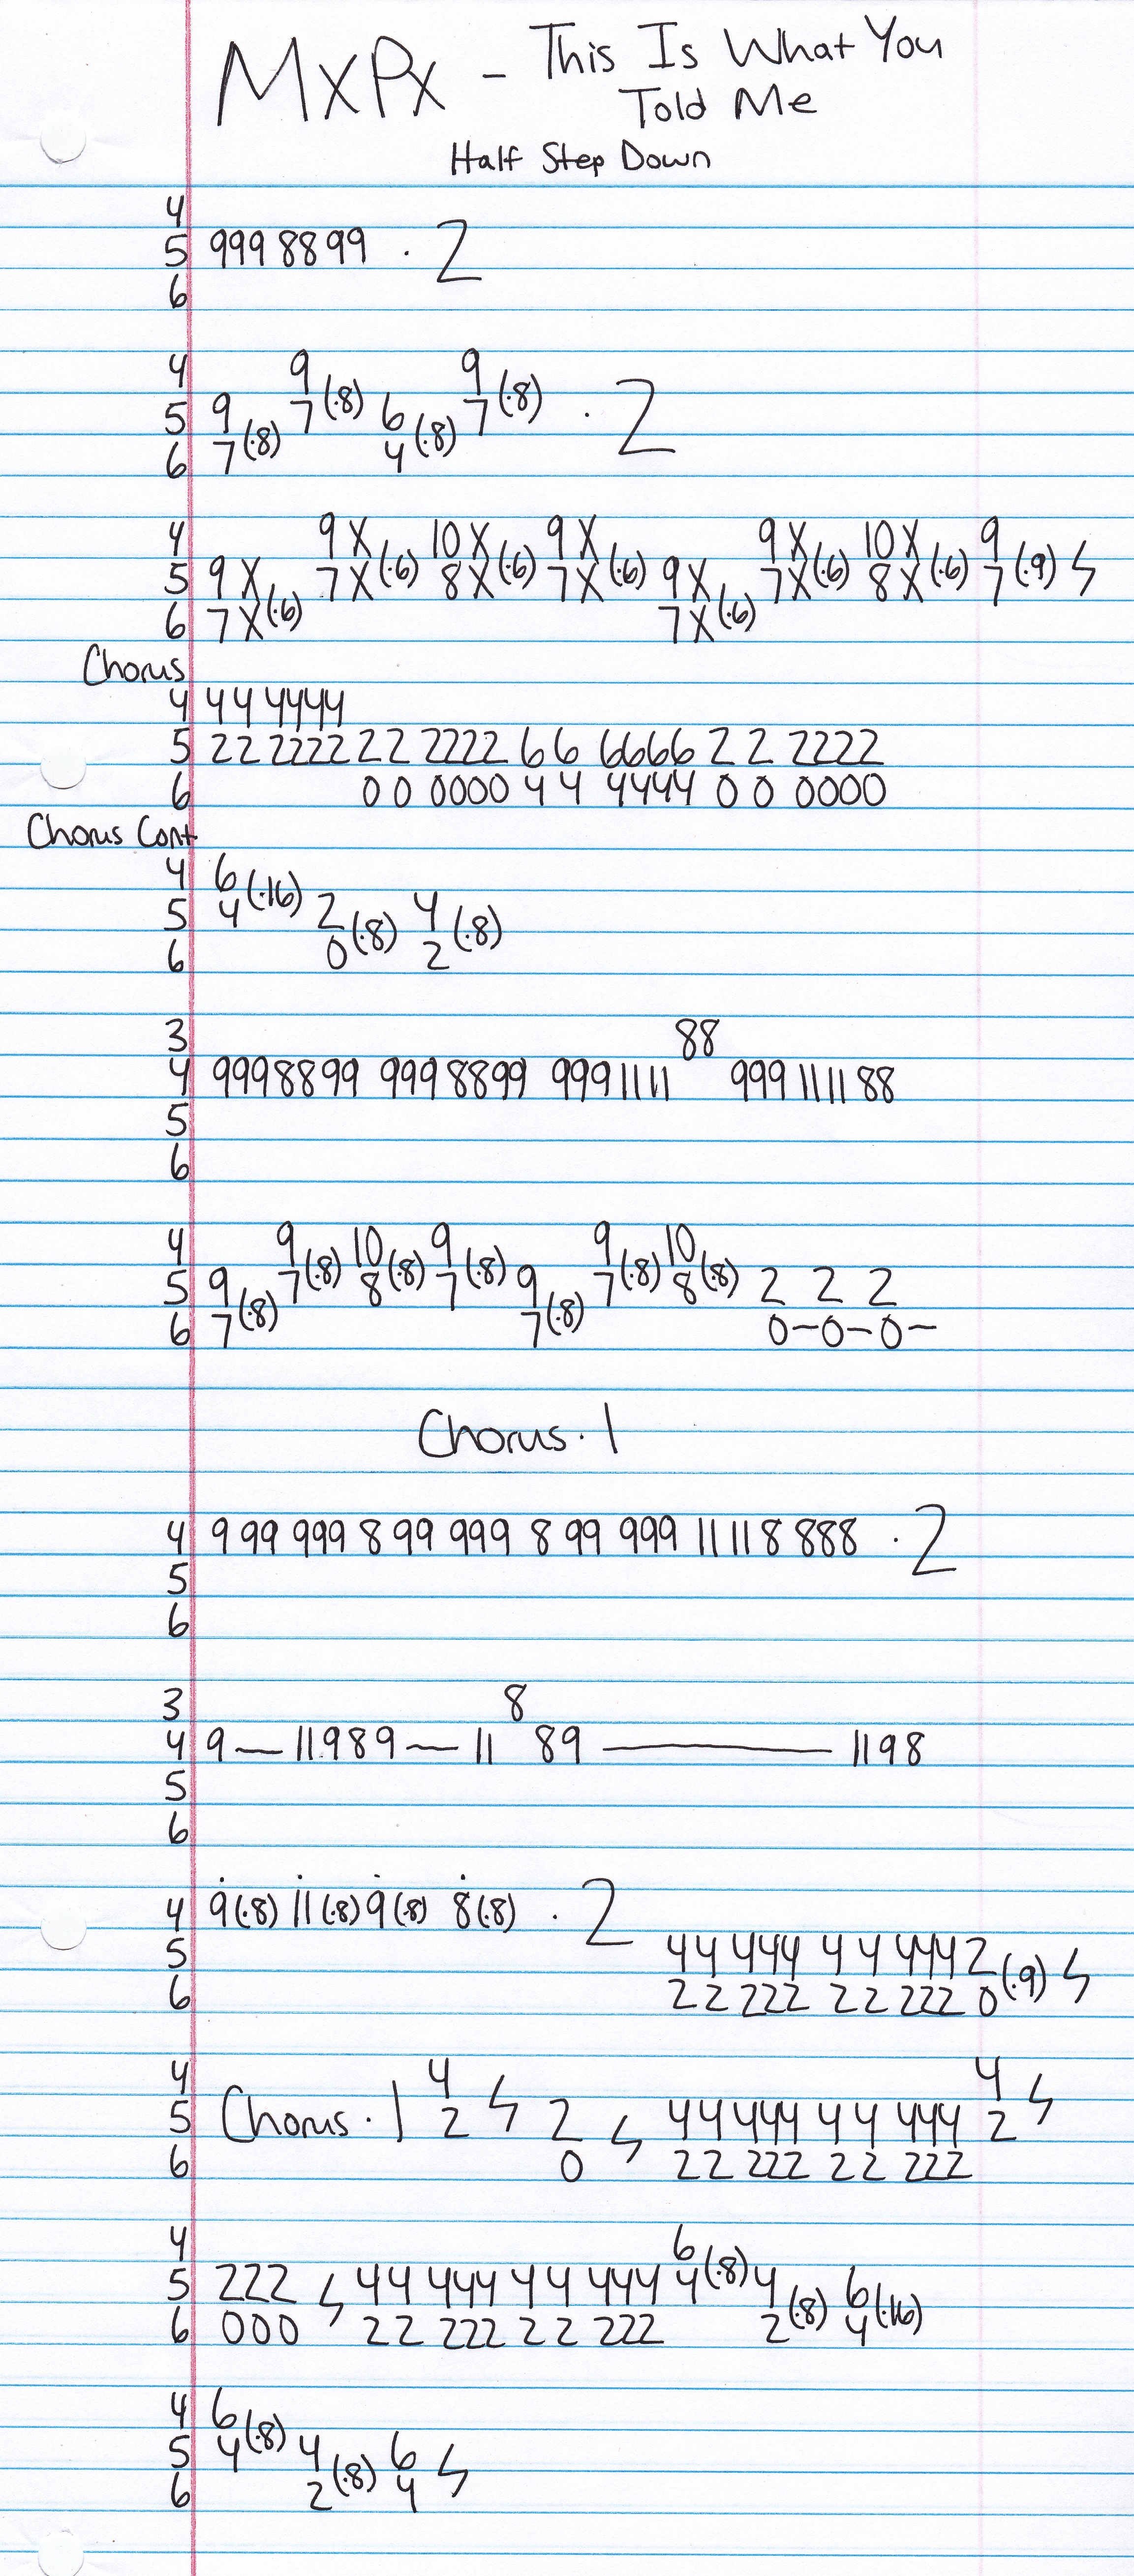 MXPX - This Is What You
Told Me
Half Step Down
4
5 999 88 99 · 2
6
4 9 9
5 9 7(·8) 6 7(·8) · 2
6 7(·8) 4(·8)
4 9X 10X 9X 9X 10X 9
5 9X 7X(·6) 8X(·6) 7X(·6) 9X 7X(·6) 8X(·6) 7(·9) ϟ
6 7X(·6) 7X(·6)
Chorus
4 44 4444
5 22 2222 22 2222 66 6666 2 2 2222
6 0 0 0000 4 4 4444 0 0 0000
Chorus Cont
4 6
5 4(·16) 2 4
6 0(·8) 2(·8)
3 88
4 9998899 9998899 9991111 999 1111 88
5
6
4 9 10 9 9 10
5 9 7(·8) 8(·8) 7(·8) 9 7(·8) 8(·8) 2 2 2
6 7(·8) 7(·8) 0-0-0-
Chorus · 1
4 9 99 999 8 99 999 8 99 999 11 11 8 888 · 2
5
6
3 8
4 9— 11989— 11 89 ——— 1198
5
6
4 9(·8) 11(·8) 9(·8) 8(·8) · 2
5 44 444 4 4 444 2
6 22 222 22 222 0(·9) ϟ
4 4 4
5 Chorus · 1 2 ϟ 2 44 444 4 4 444 2 ϟ
6 0 ϟ 22 222 22 222
4 6
5 222 44 444 44 444 4(·8) 4 6
6 000 ϟ 22 222 22 222 2(·8) 4(·16)
4 6
5 4(·8) 4 6
6 2(·8) 4 ϟ